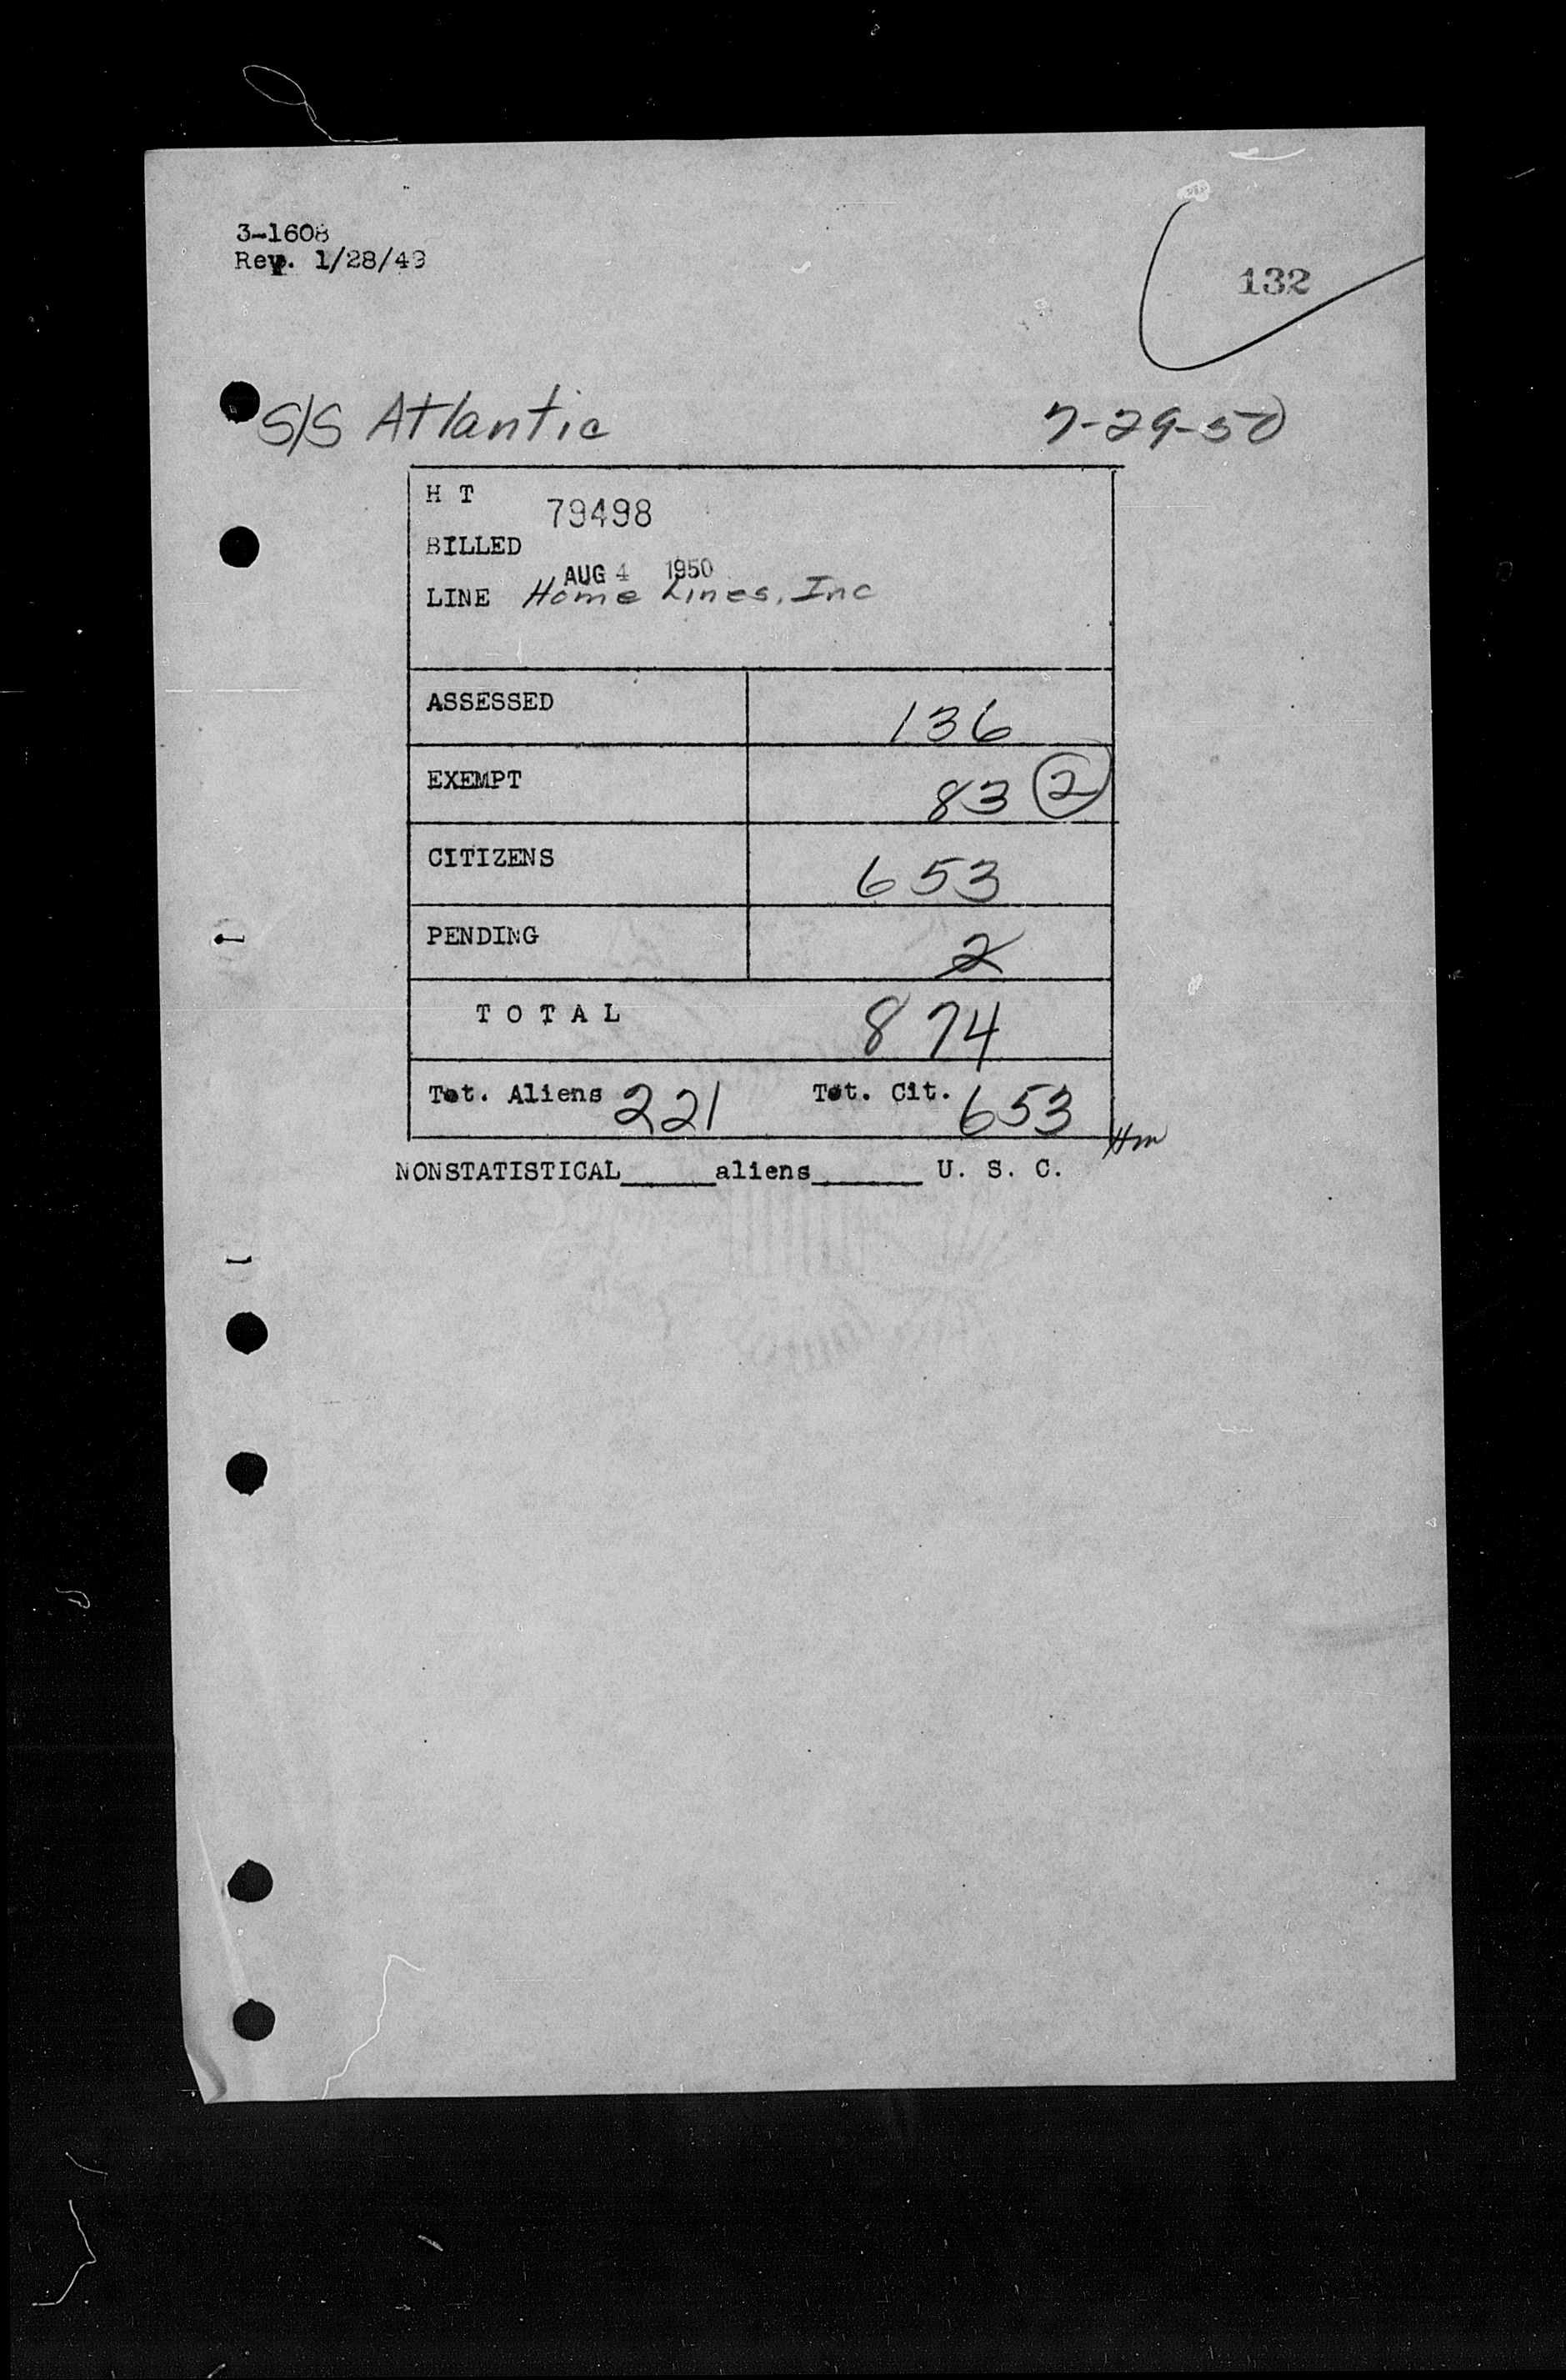 3-1608
Rev. 1/28/49
132
S/S Atlantic 7-29-50
H T 79498
BILLED
AUG 4 1950
LINE Home Lines, Inc
ASSESSED 136
EXEMPT 83 2
CITIZENS 653
PENDING 2
T O T A L 874
Tot. Aliens 221 Tot. Cit. 653
Hm
NONSTATISTICAL_____aliens______ U. S. C.